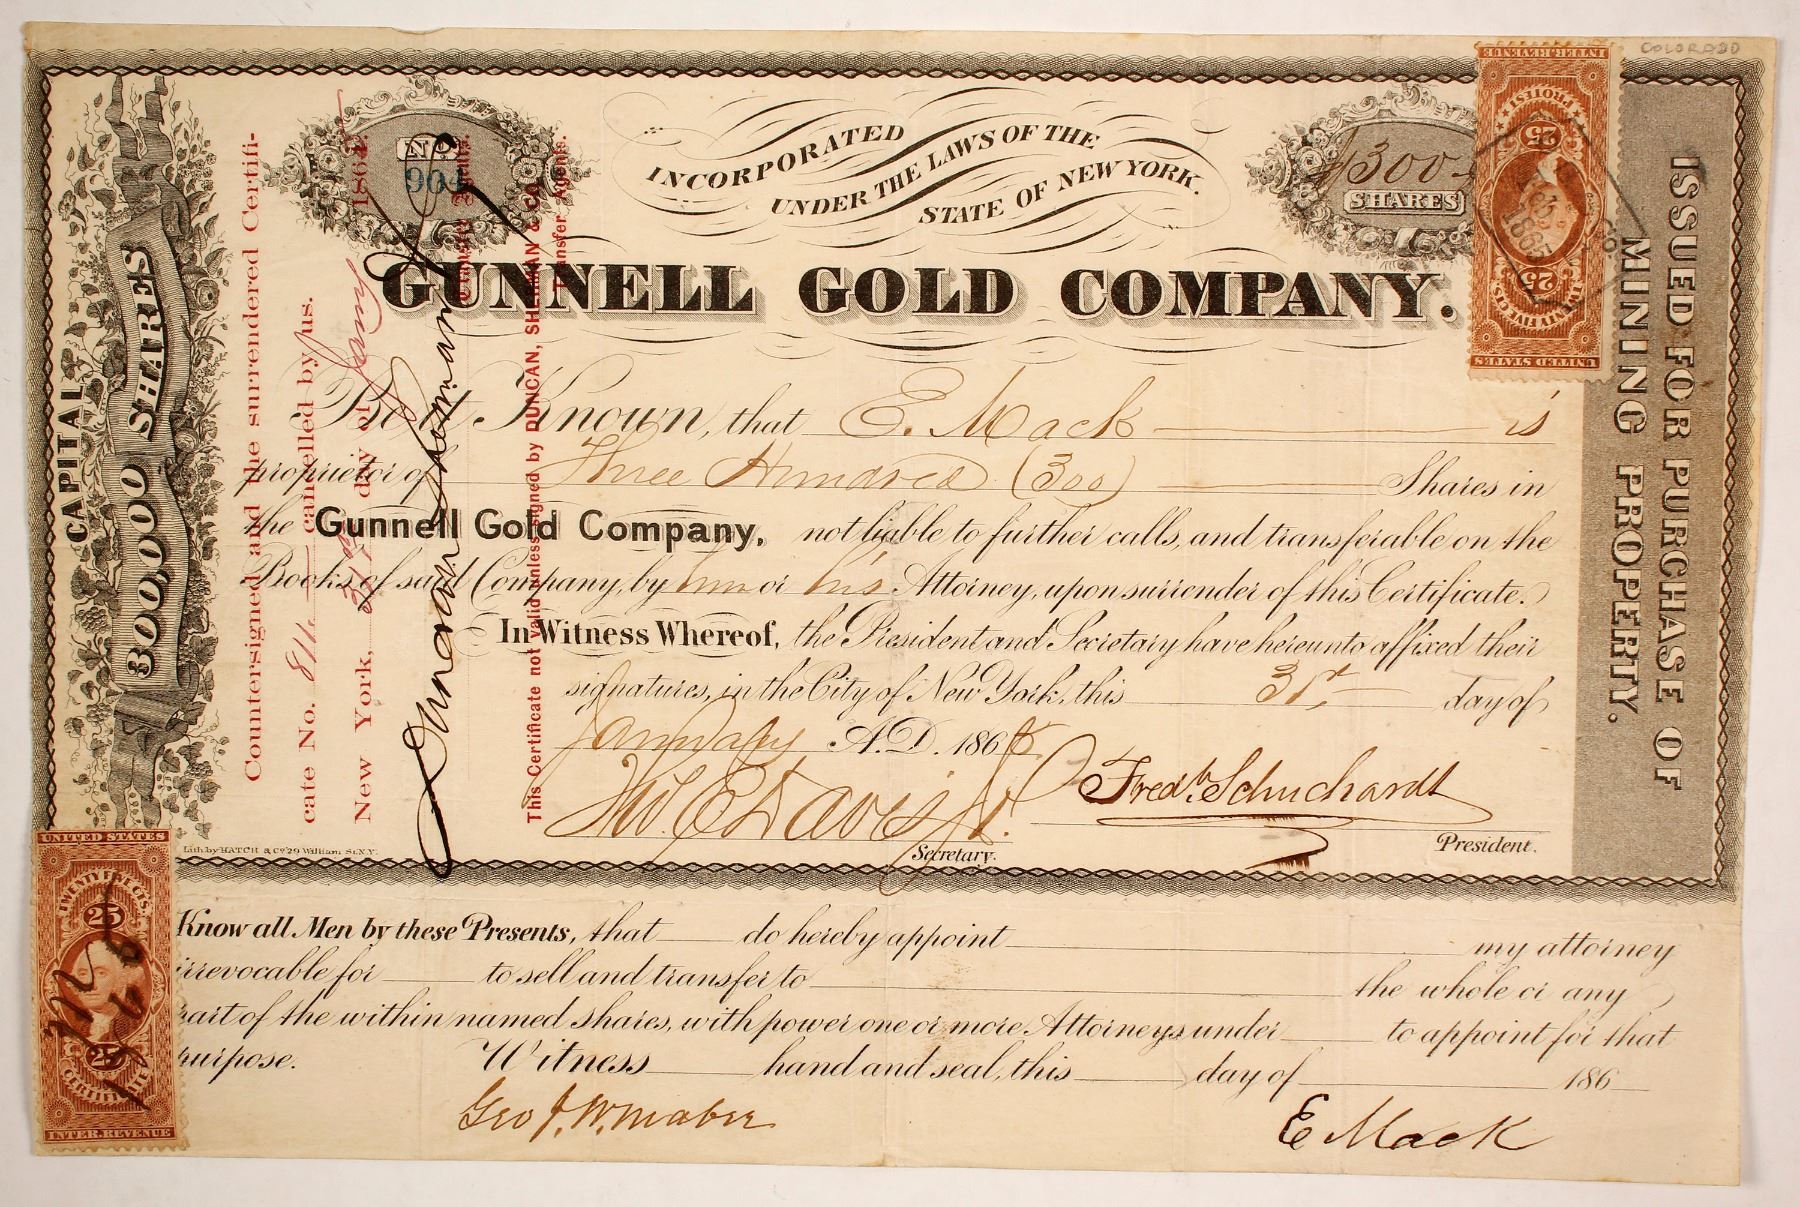 COLORADO
INCORPORATED
UNDER THE LAWS OF THE
STATE OF NEW YORK.
No.
904
300
SHARES
GUNNELL GOLD COMPANY.
CAPITAL
3000,000 SHARES
ISSUED FOR PURCHASE OF
MINING PROPERTY.
Be it Known, that E. Mack is
proprietor of Three Hundred (300) Shares in
the Gunnell Gold Company, not liable to further calls, and transferable on the
Books of said Company, by him or his Attorney, upon surrender of this Certificate.
In Witness Whereof, the President and Secretary have hereunto affixed their
signatures, in the City of New York, this 31st day of
January A.D. 186
Fredk. Schuchardt
Secretary.
President.
Lith. by HATCH & Co. 29 William St. N.Y.
Countersigned and the surrendered Certifi-
cate No. cancelled by us.
New York, 31st day of Jany 186
Duncan Sherman
This Certificate not valid unless signed by DUNCAN, SHERMAN & CO.
Transfer Agents.
UNITED STATES
TWENTY FIVE CTS.
25
25
PROTEST
INTER. REVENUE
1865
UNITED STATES
TWENTY FIVE CTS.
25
25
CERTIFICATE
INTER. REVENUE
Know all Men by these Presents, that do hereby appoint my attorney
irrevocable for to sell and transfer to the whole or any
part of the within named shares, with power one or more Attorneys under to appoint for that
purpose. Witness hand and seal, this day of 186
E Mack